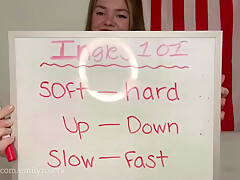 Ingles 101
Soft — hard
Up — Down
Slow — Fast